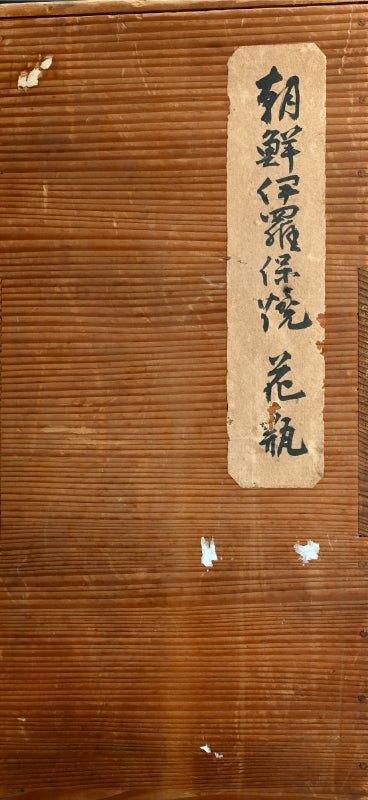 朝鮮伊羅保焼 花瓶